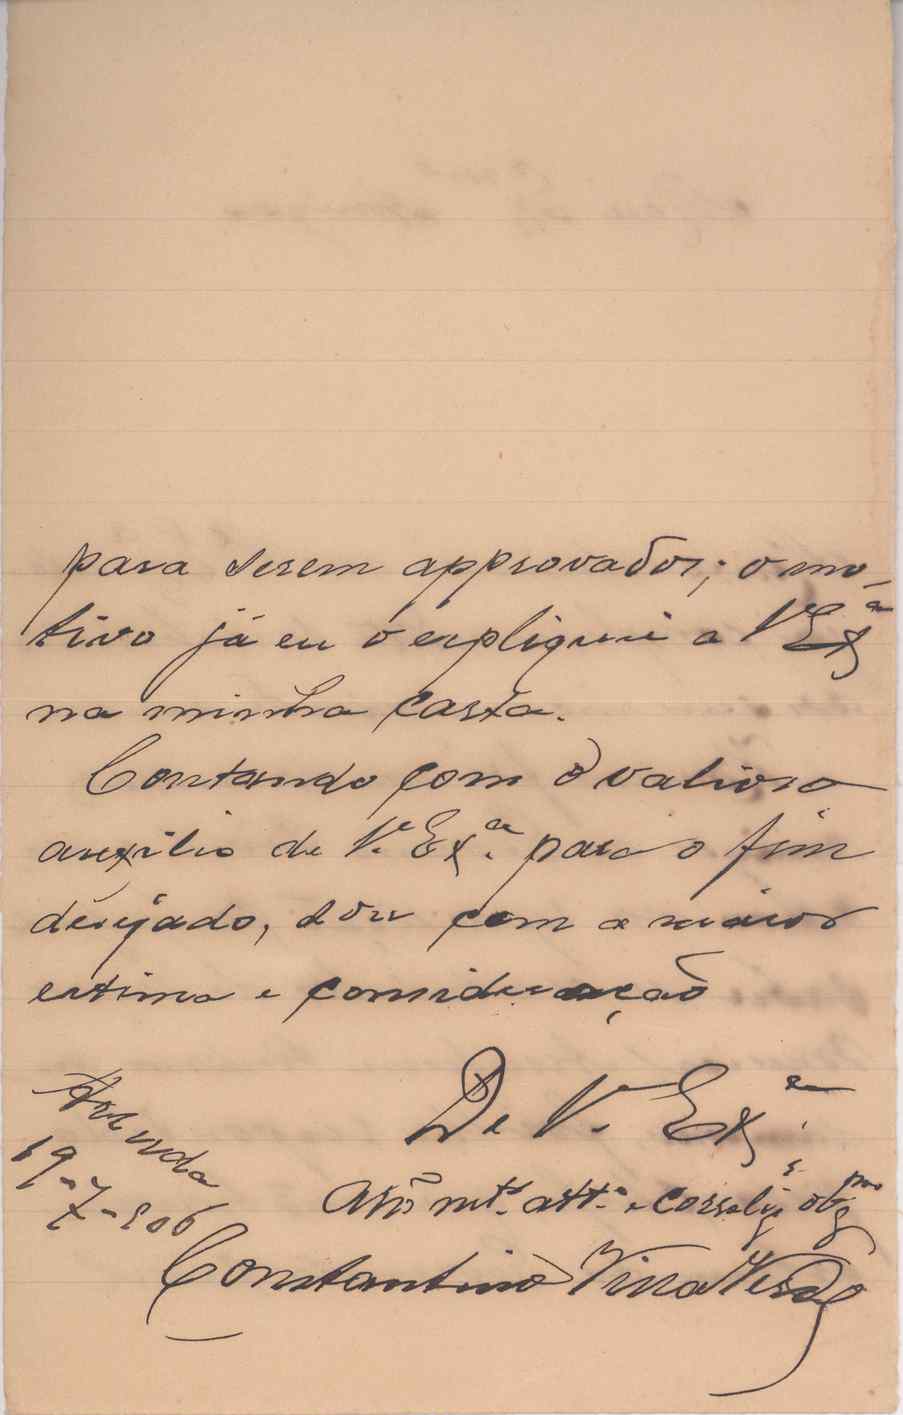 para serem approvados; o mo-
tivo já eu o expliquei a V Exª
na minha carta.
Contando com o valioso
auxilio de V. Exª. para o fim
desejado, sou com a maior
estima e consideração
De V. Exª.
mtº. attº. e
19-7-906
Constantino Villa Verde